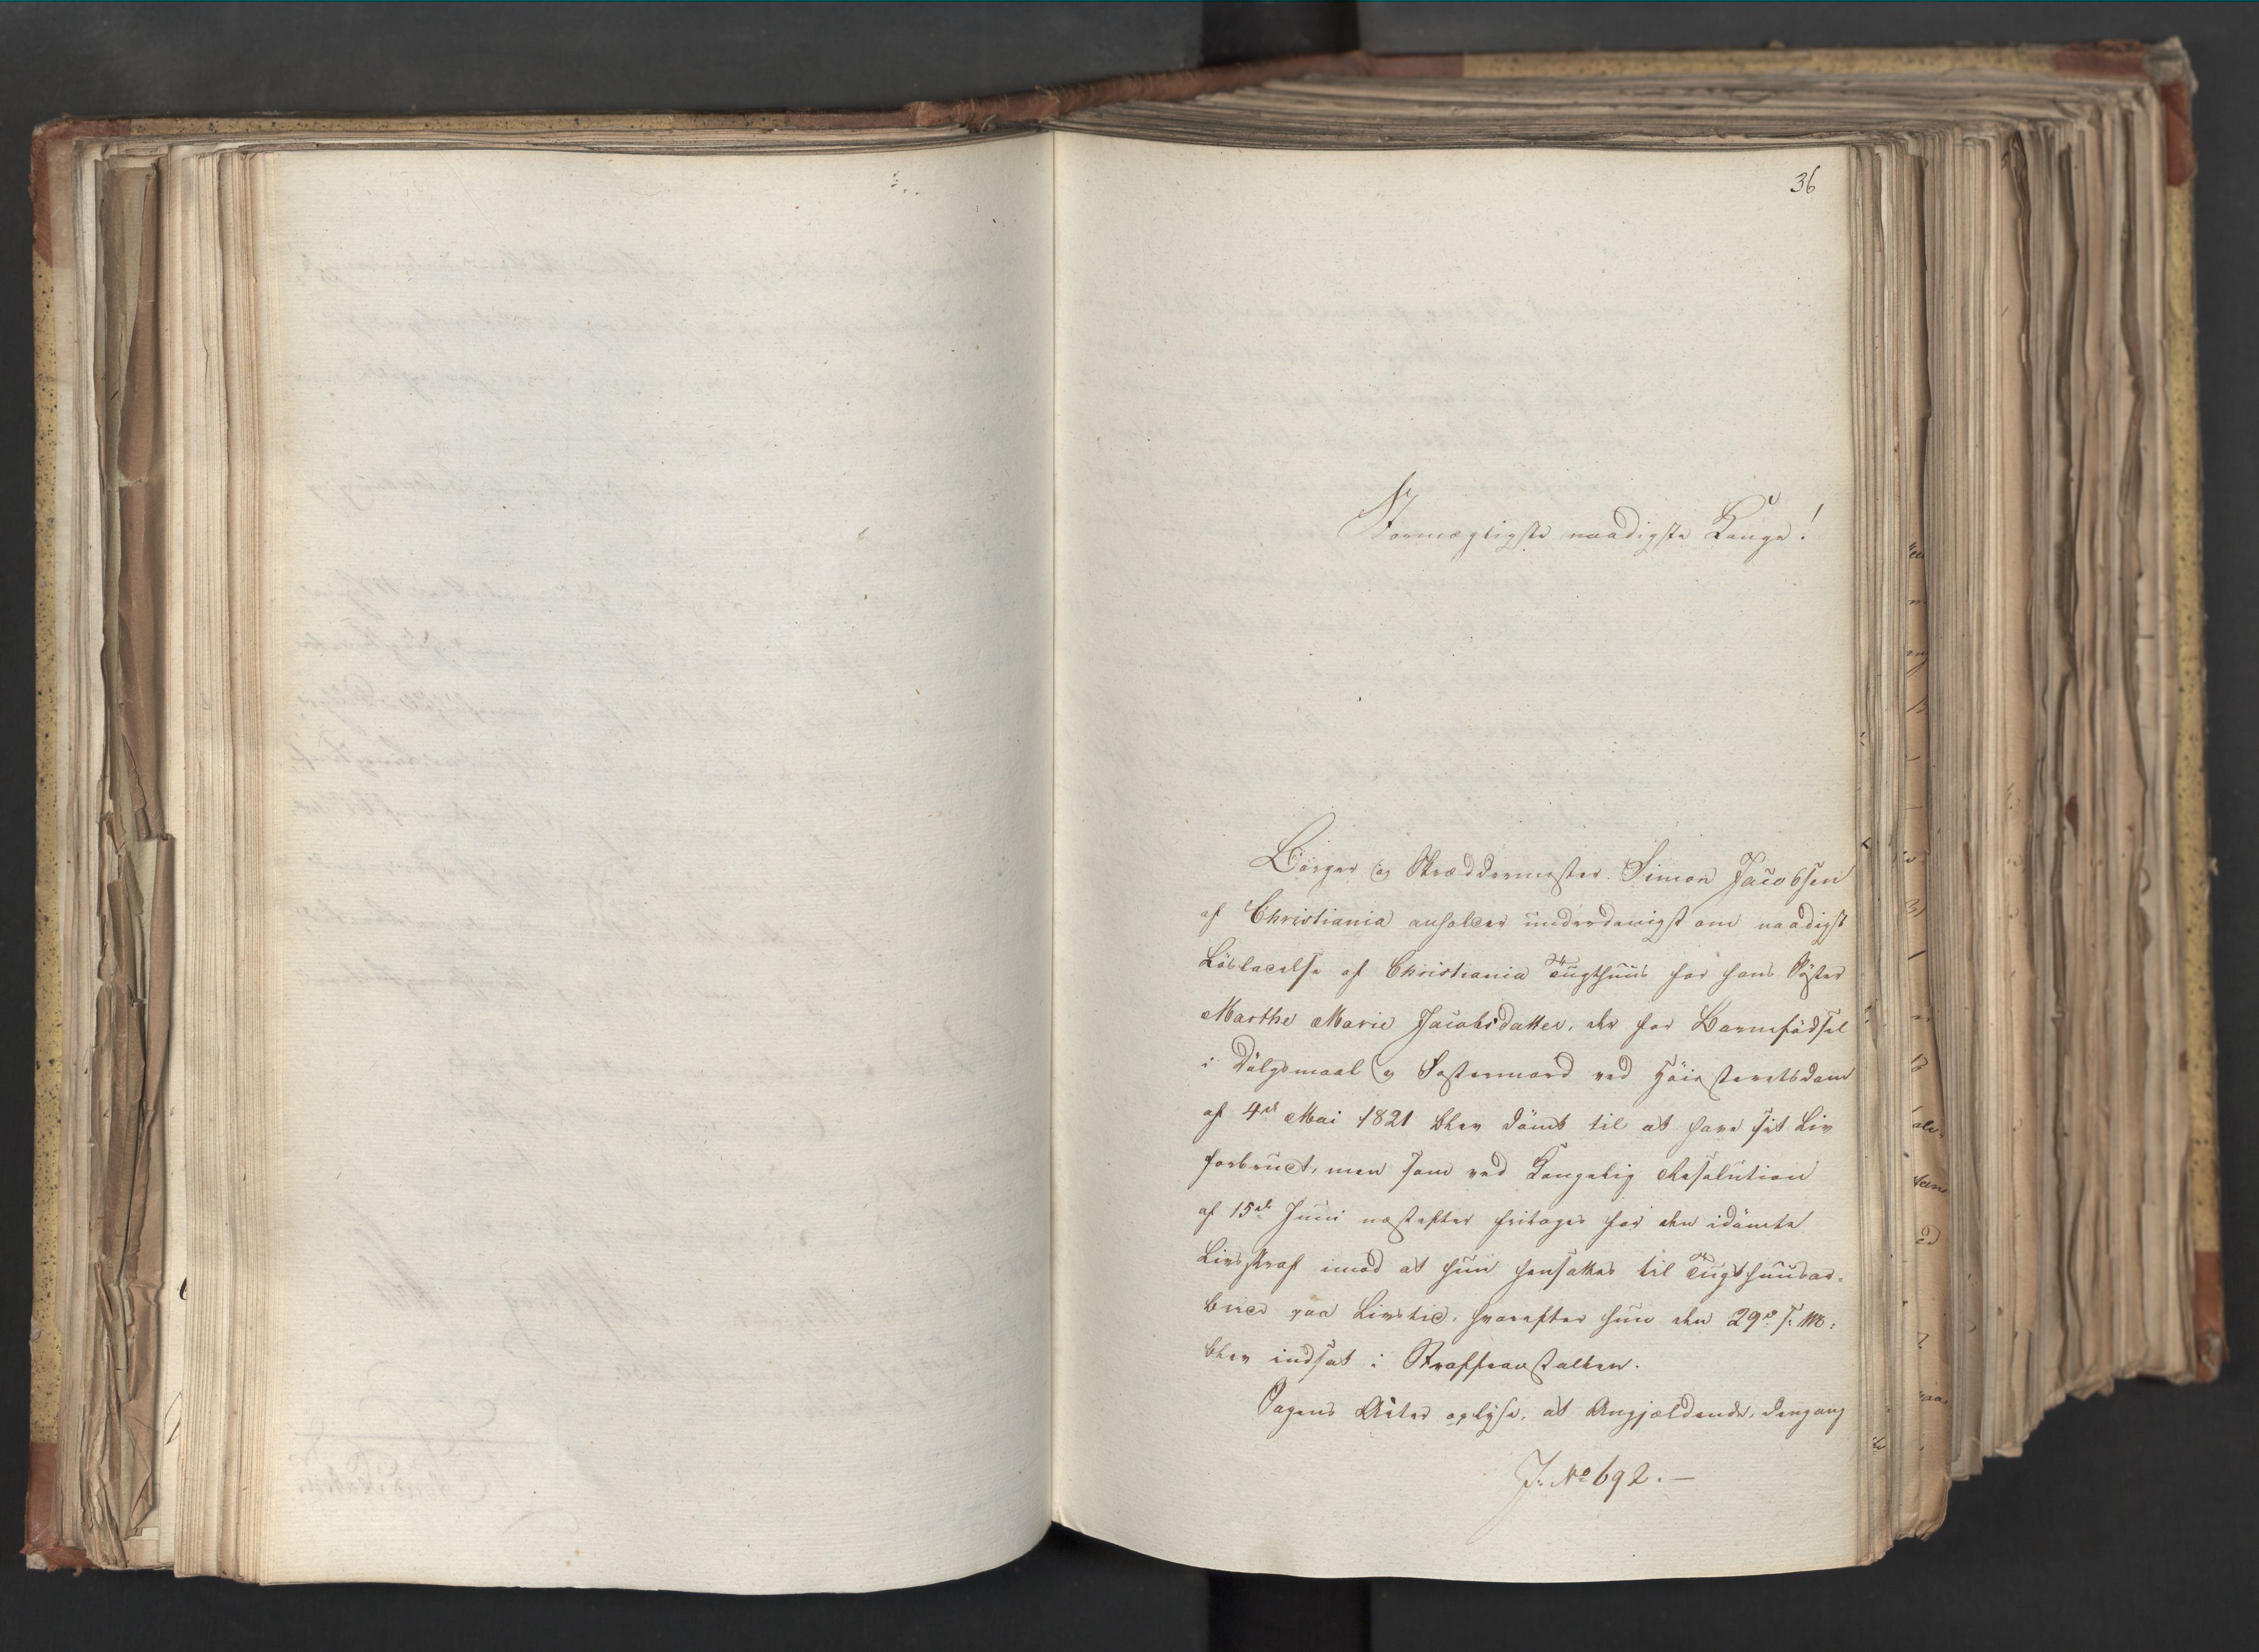 36
Stormægtigste naadigste Konge!
Börger og Skræddermester Simon Jacobsen
af Christiania anholder underdanigst om naadigst
Lösladelse af Christiania Tugthuus for hans Söster
Marthe Marie Jacobsdatter, der for Barnefödsel
i Dölgsmaal og Fostermord ved Höiesteretsdom
af 4de Mai 1821 blev dömt til at have sit Liv
forbrudt, men som ved Kongelig Resolution
af 15de Juni næstefter fritoges for den idömte
Livsstraf imod at hun hensattes til Tugthuusar-
beide paa Livstid, hvorefter hun den 29de s: M:
blev indsat i Straffeanstalten.
Sagens Akter oplyse, at Angjældende, dengang
J: No 692. —